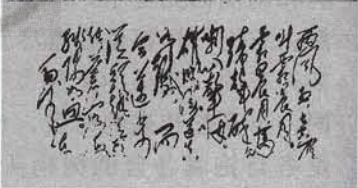 西风烈长空雁
叫霜晨月
霜晨月马
蹄声碎
喇叭声咽
雄关漫道真
如铁而
今迈步
从头越
苍山如海
残阳如血